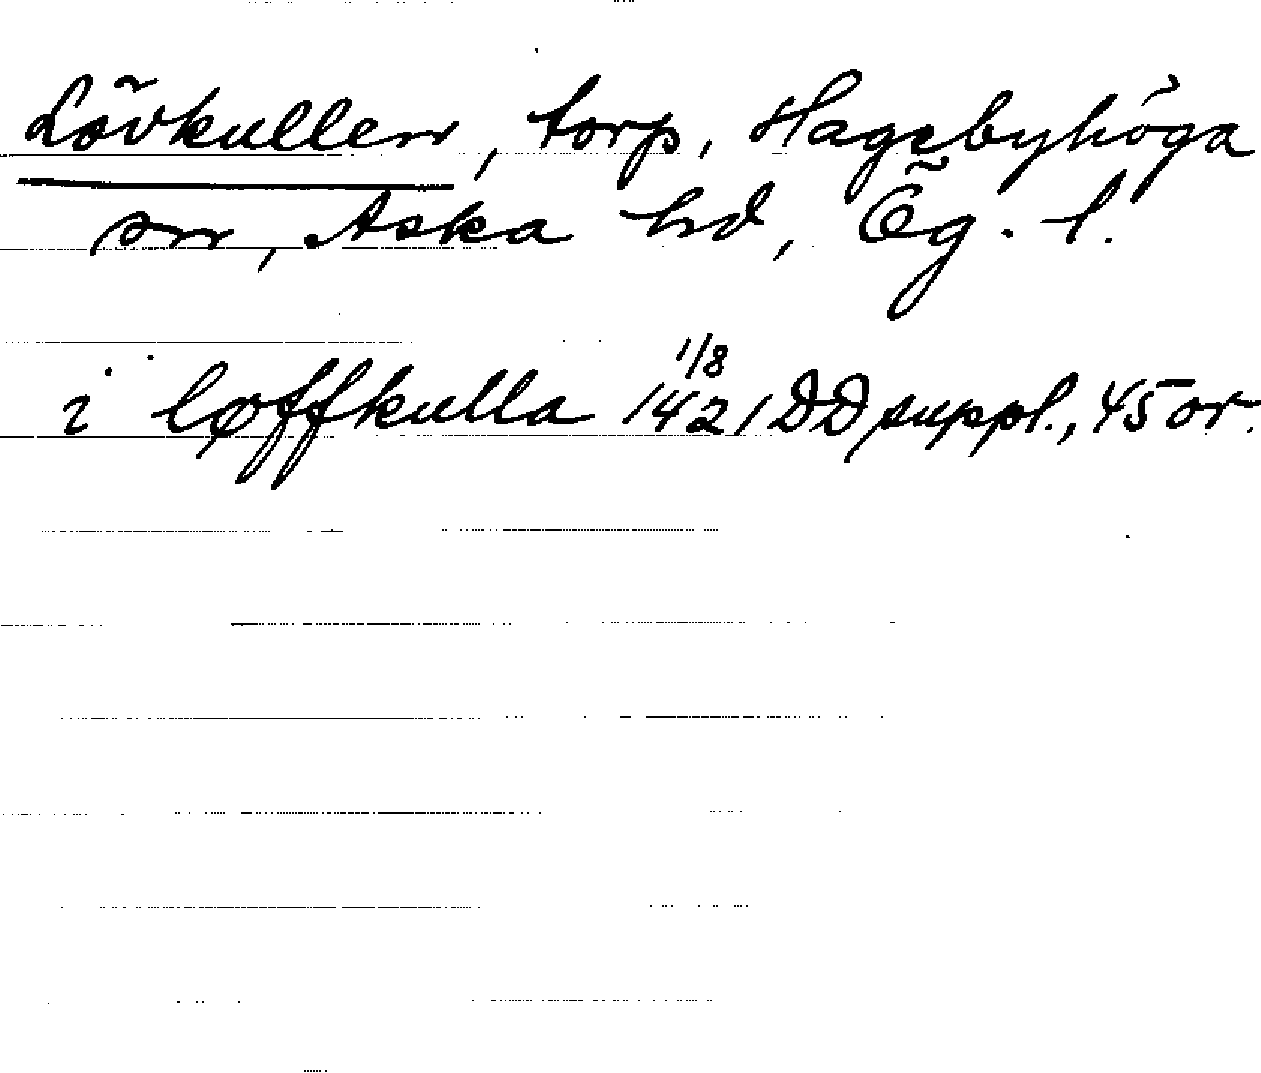 Lövkullen, torp, Hagebyhöga
sn, Aska hd, Ög. l.
i løffkulla 1/8 1421 DD suppl., 45 or.